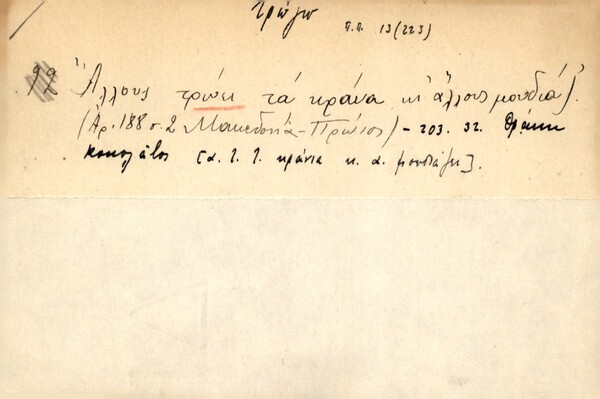 τρώγω
Π.Π. 13 (223)
92 Ἄλλους τρώει τά κράνα κι' ἄλλους μουδιά].
(Ἀρ. 188 σ. 2 Μακεδονία - Πρώιος) - 203. 32. Θράκη
[α. τ. τ. κράνια κ. α. μουδιάζει].